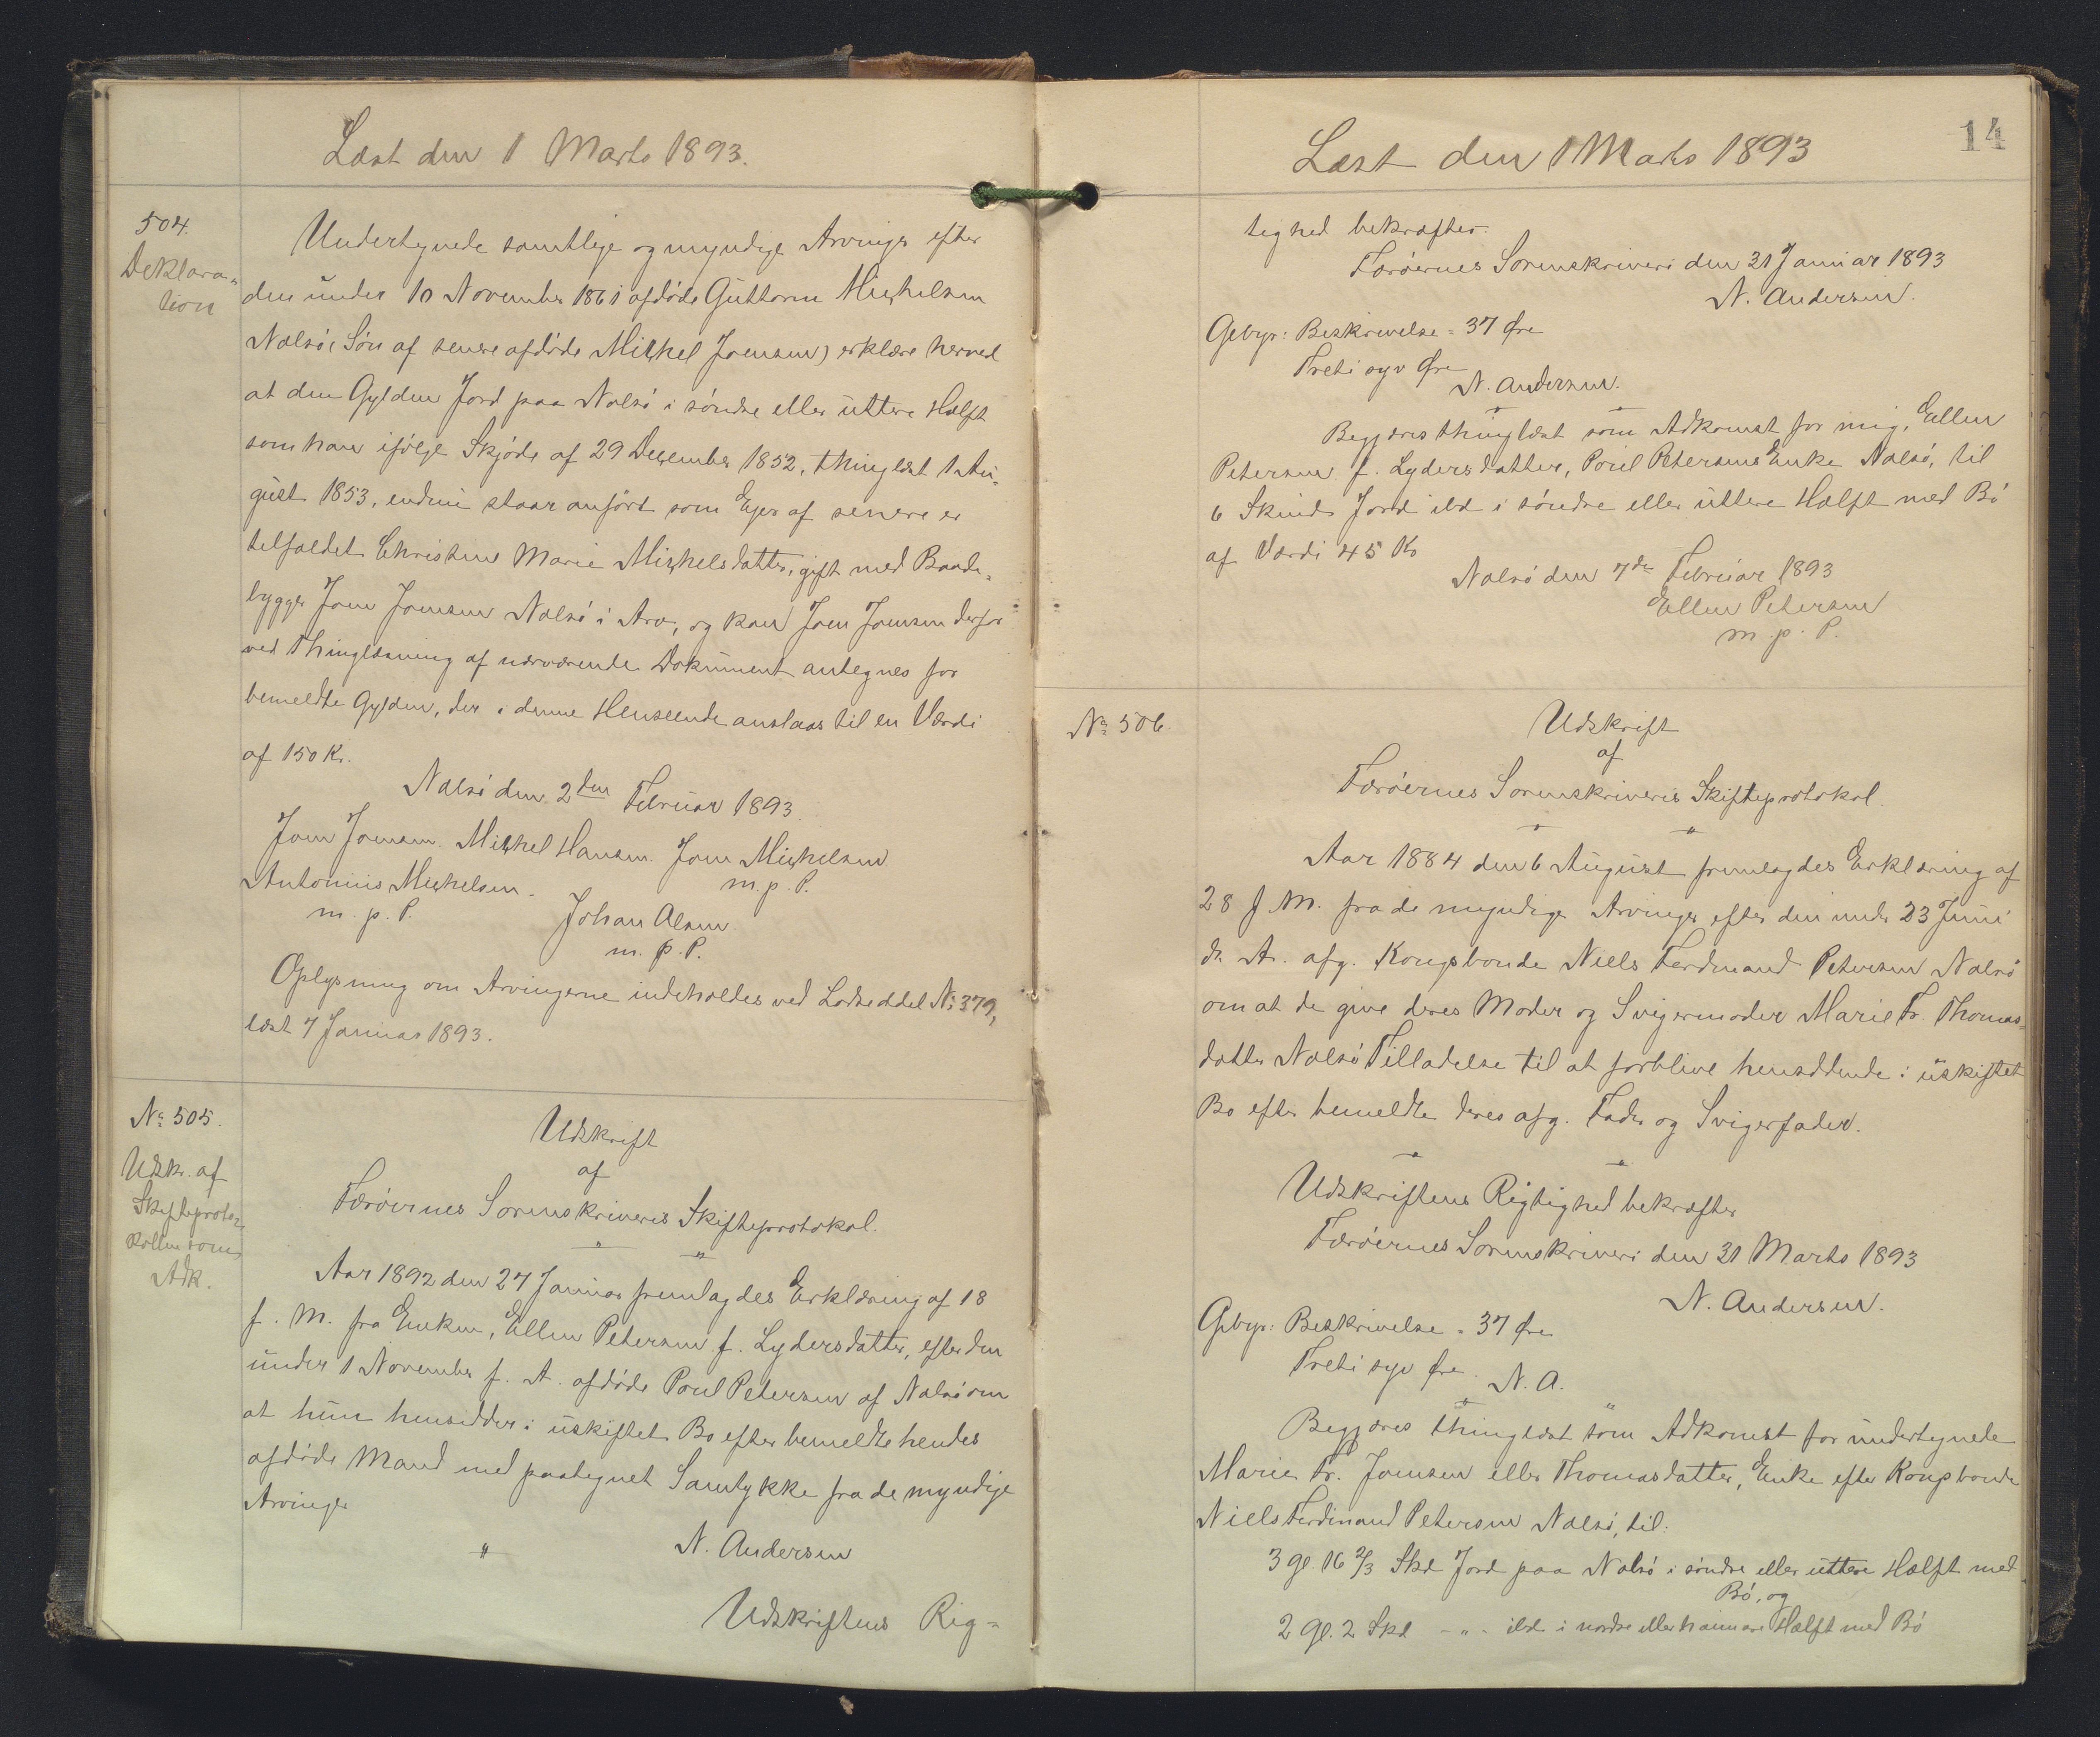 Læst den 1 Marts 1893.
504.
Deklara-
tion
Undertegnede samtlige og myndige Arvinger efter
den under 10 November 1861 afdøde Guttorm Mickelsen
Nolsö (Sön af senere afdöde Mickel Joensen) erklære herved
at den Gylden Jord paa Nolsö i söndre eller üttere Hælft
som han ifölge Skjöde af 29 December 1852, thinglæst 1 Au-
güst 1853, endnü staar anfört som Ejer af senere er
tilfaldet Christine Marie Mickelsdatter, gift med Baade-
bygger Joen Joensen Nolsö i Arv, og kan Joen Joensen derfor
ved Thinglæsning af nærværende Dokument antegnes for
bemeldte Gylden, der i denne Henseende anslaas til en Værdi
af 150 Kr.
Nolsö den 2den Februar 1893.
Joen Joensen. Mickel Hansen. Joen Mickelsen
m. p. P.
Antonius Mickelsen.
m. p. P.
Johan Olsen
m. p. P.
Oplysning om Arvingerne indeholdes ved Lodseddel No 379,
læst 7 Januar 1893.
No 505.
Udskr. af
Skifteproto-
kollen som
Adk.
Udskrift
af
Færöernes Sorenskriveris Skifteprotokol.
Aar 1892 den 27 Januar fremlagdes Erklæring af 18
f. M. fra Enken, Ellen Petersen f. Lydersdatter, efter den
under 1 November f. A. afdöde Poul Petersen af Nolsö om
at hun hensidder i uskiftet Bo efter bemeldte hendes
afdöde Mand med paategnet Samtykke fra de myndige
Arvinger
" N. Andersen
Udskriftens Rig-
14
Læst den 1 Marts 1893
tighed bekræfter.
Færöernes Sorenskriveri den 31 Januar 1893
N. Andersen.
Gebyr: Beskrivelse = 37 Øre
Treti syv Øre
N. Andersen.
Begjæres thinglæst som Adkomst for mig, Ellen
Petersen f. Lydersdatter, Poul Petersens Enke Nolsö, til
6 Skind Jord ibd i söndre eller üttere Hælft med Bö
af Værdi 45 Kr
Nolsö den 7de Februar 1893
Ellen Petersen
m. p. P.
No 506.
Udskrift
af
Færöernes Sorenskriveris Skifteprotokol.
Aar 1884 den 6 August fremlagdes Erklæring af
28 f. M. fra de myndige Arvinger efter den under 23 Juni
ds. A. afg. Kongsbonde Niels Ferdinand Petersen Nolsö
om at de give deres Moder og Svigermoder Marie Fr. Thomas-
datter Nolsö Tilladelse til at forblive hensiddende i uskiftet
Bo efter bemeldte deres afg. Fader og Svigerfader.
Udskriftens Rigtighed bekræfter
Færöernes Sorenskriveri den 31 Marts 1893
N. Andersen.
Gebyr: Beskrivelse = 37 Øre
Treti syv Øre.
N. A.
Begjæres thinglæst som Adkomst for undertegnede
Marie Fr. Joensen eller Thomasdatter, Enke efter Kongsbonde
Niels Ferdinand Petersen Nolsö, til:
3 gl. 16 2/3 Skd Jord paa Nolsö i söndre eller üttere Hælft med
Bö, og
2 Gl. 2 Skd - " - ibd i nordre eller haimare Hælft med Bö